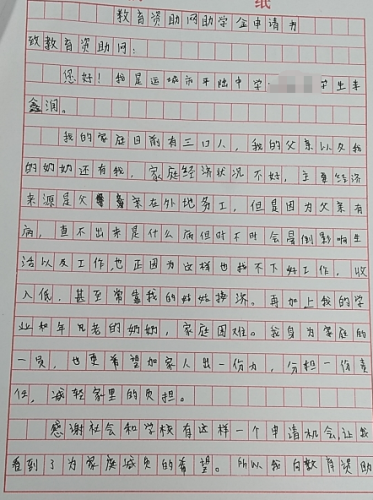 纸
教育资助网助学金申请书
致教育资助网:
您好!我是运城市平陆中学 学生来
鑫润。
我的家庭目前有三口人,我的父亲以及我
的奶奶还有我,家庭经济状况不好,主要经济
来源是父亲在外地务工,但是因为父亲有
病,查不出来是什么病但时不时会晕倒影响生
活以及工作,也正因为这样也找不下好工作,收
入低,甚至常靠我的姑姑接济。再加上我的学
业和年老的奶奶,家庭困难。我身为家庭的
一员,也更希望加家人出一份力,分担一份责
任,减轻家里的负担。
感谢社会和学校有这样一个申请机会,让我
看到了为家庭减负的希望。所以我向教育资助